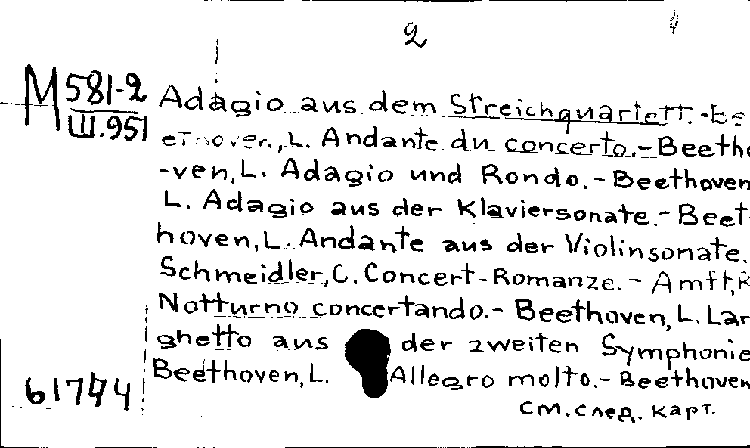 2
M 581-2
III.951
Adagio aus dem Streichquartett.-Be
ethoven, L. Andante du concerto.-Beetho
-ven, L. Adagio und Rondo.-Beethoven
L. Adagio aus der Klaviersonate.-Beet
hoven, L. Andante aus der Violinsonate.
Schmeidler, C. Concert-Romanze.-Amft,
Notturno concertando.-Beethoven, L. Lar
ghetto aus der zweiten Symphonie
Beethoven, L. Allegro molto.-Beethoven
61744
см. след. карт.